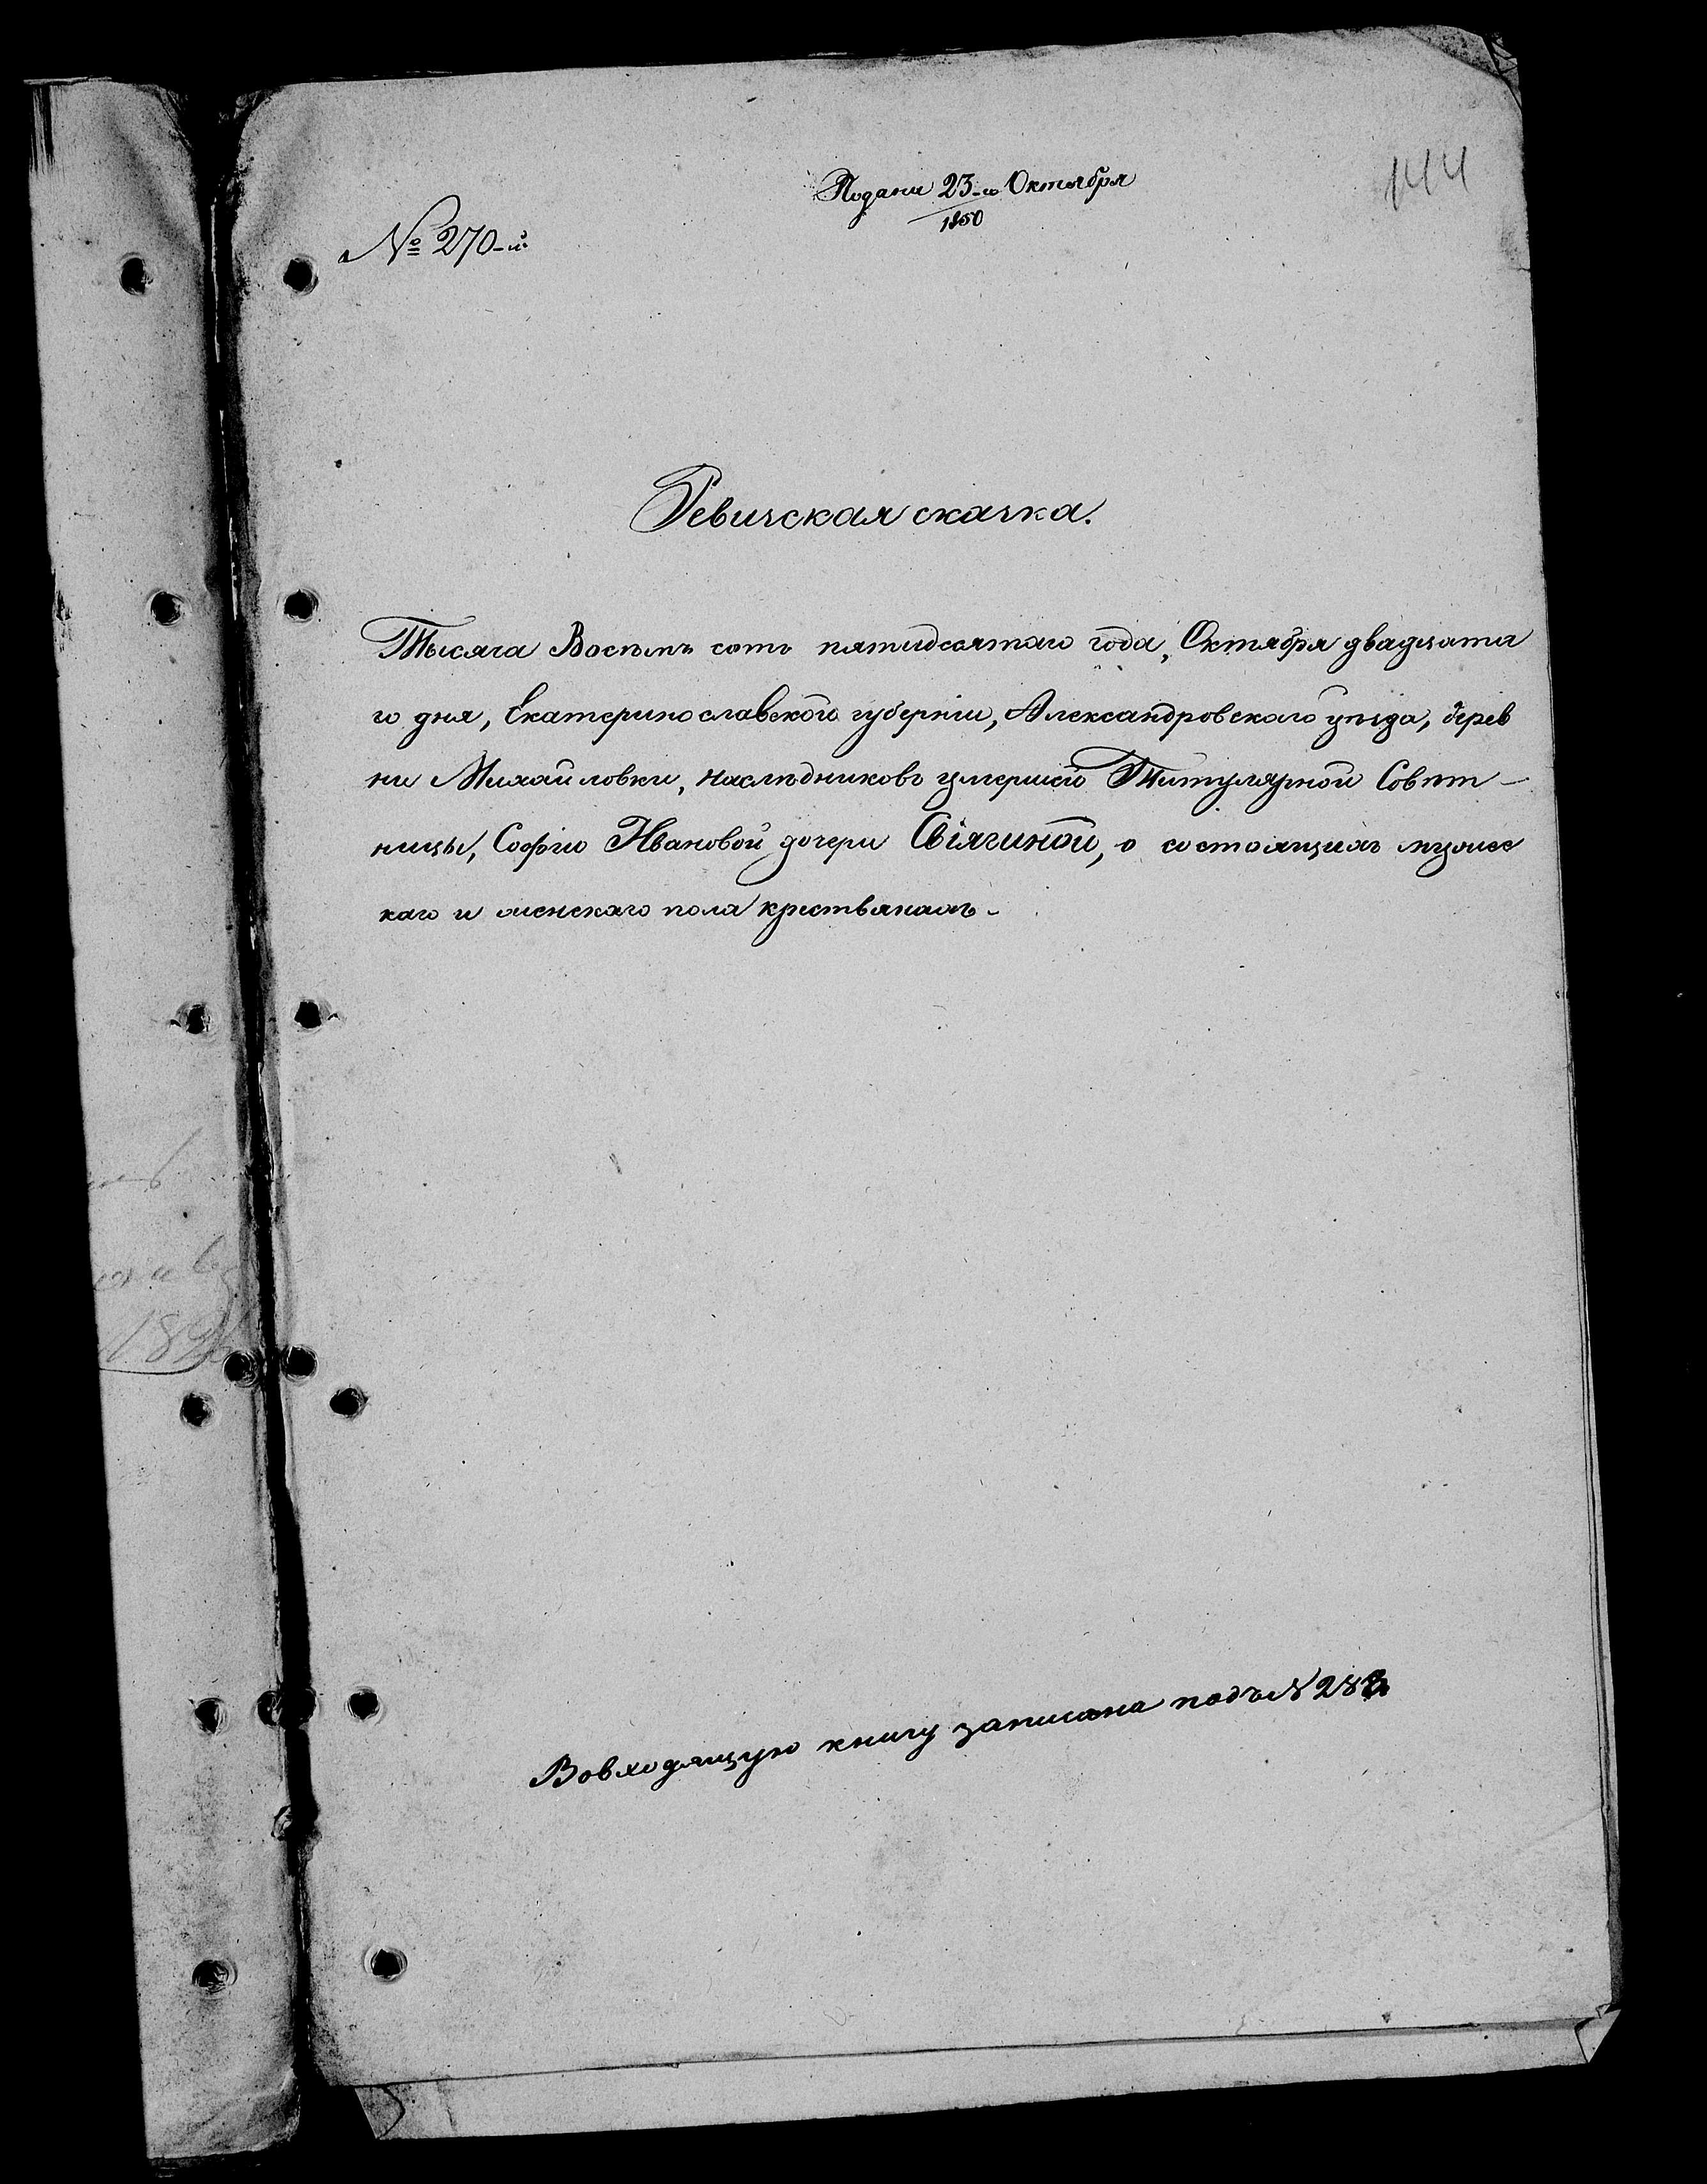 144
Подана 23-го Октября
1850
№ 270-й
Ревизская сказка.
Тысяча Восемь сотъ пятидесятаго года, Октября двадцата
го дня, Екатеринославской губерніи, Александровскаго уѣзда, дерев
ни Михайловки, наслѣдниковъ умершей Титулярной Совѣт-
ницы, Софіи Ивановой дочери Свіягиной, о состоящихъ мужес
каго и женскаго пола крестьянахъ.
Вовходящую книгу записана подъ №